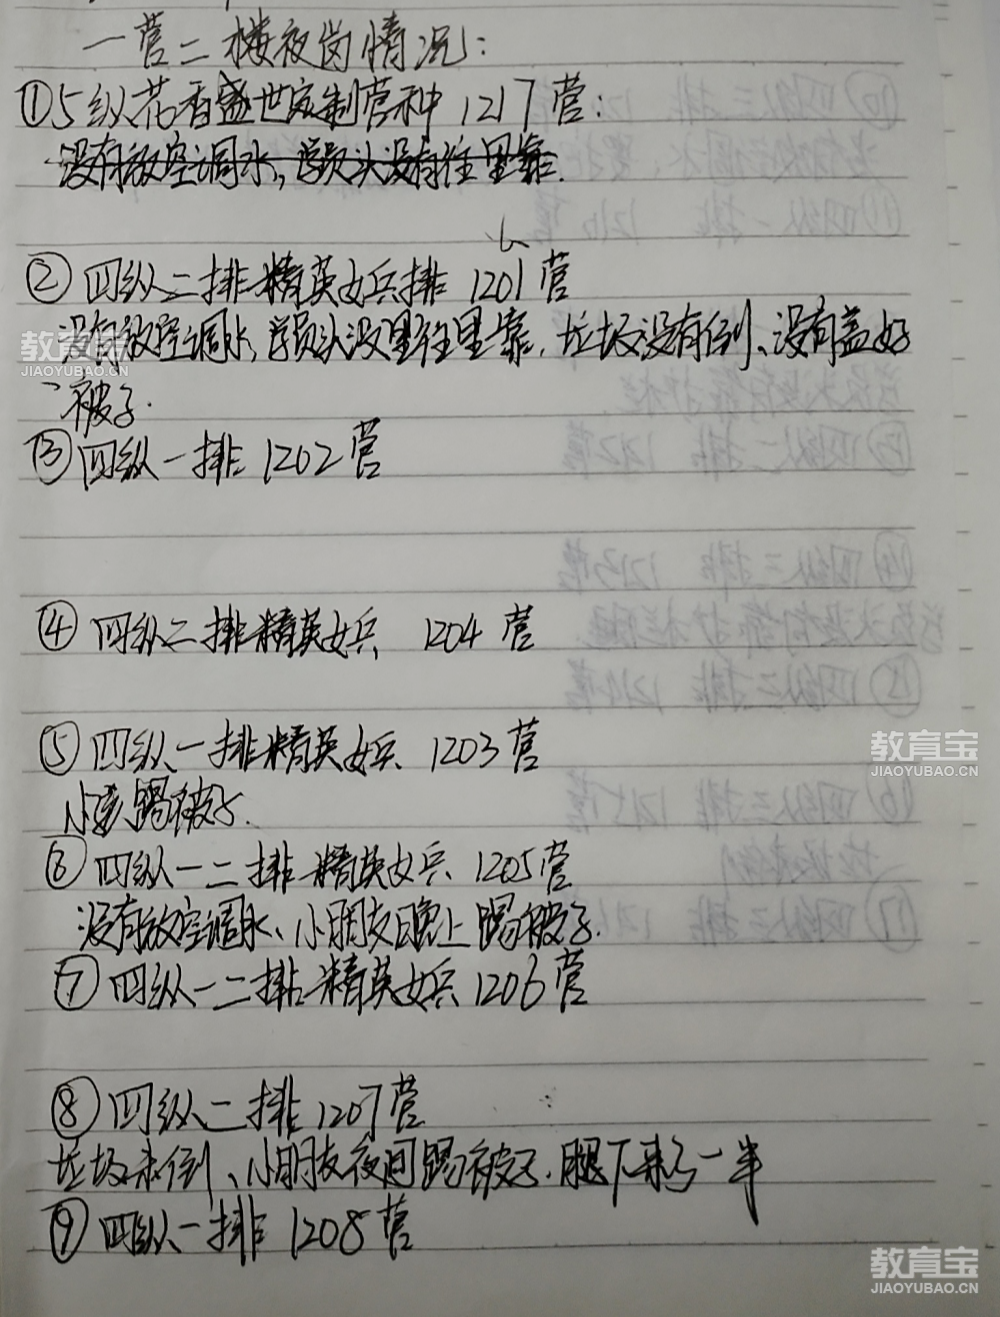 一营二楼夜岗情况:
①5纵花香盛世定制营种 1217营:
没有放空调水,学员头没有往里靠.
②四纵二排精英女兵排 1201营
没有放空调水,学员头没里往里靠.垃圾没有倒、没有盖好
被子.
③四纵一排 1202营
④四纵二排精英女兵 1204营
⑤四纵一排精英女兵 1203营
小孩踢被子.
⑥四纵一二排精英女兵 1205营
没有放空调水、小朋友晚上踢被子.
⑦四纵一二排精英女兵 1206营
⑧四纵二排 1207营
垃圾未倒、小朋友夜间踢被子.腿下来了一半
⑨四纵一排 1208营
教育宝
JIAOYUBAO.CN
教育宝
JIAOYUBAO.CN
教育宝
JIAOYUBAO.CN